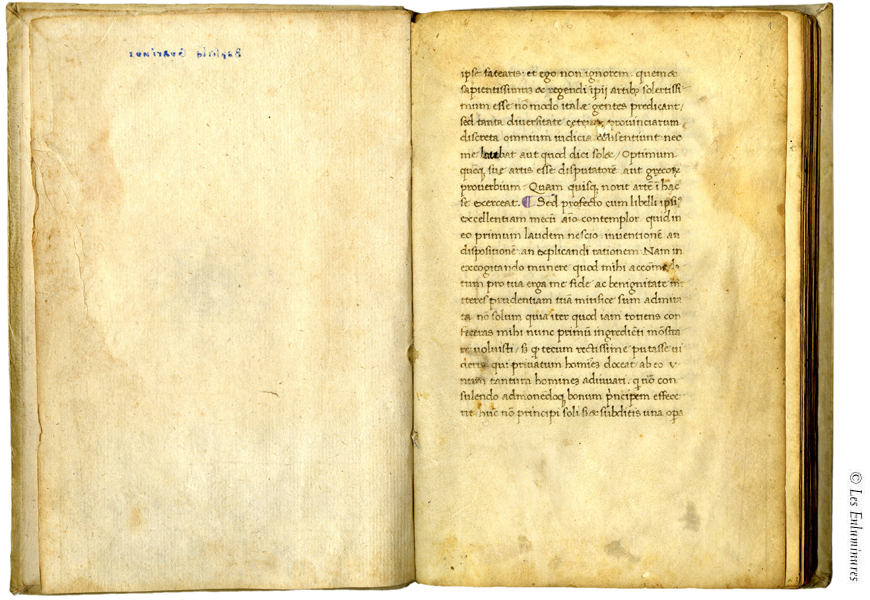 Baptista Guarinus
ipse fatearis: et ego non ignorem. quem &
sapientissimū & regendi ipīi artibꝫ solertissi
mum esse nō modo italæ gentes predicant/
sed tanta diuersitate ceterarū prouinciarum
discreta omnium iudicia cōsentiunt nec
me latebat aut quod dici solet/ Optimum
quēqꝫ suę artis esse disputatorē aut grecoꝝ
prouerbium. Quam quisqꝫ norit artē ī hac
se exerceat. ¶ Sed profecto cum libelli ipsiꝰ
excellentiam mecū aīo contemplor quid in
eo primum laudem nescio. inuentionē an
dispositionē an explicandi rationem. Nam in
excogitando munere quod mihi accōmoda
tum pro tua erga me fide ac benignitate m
tteres prudentiam tuā mirifice sum admira
ta. nō solum quia iter quod iam totiens con
feceras mihi nunc primū ingrediēti mōstra
re uoluisti/ sꝫ qꝫ tecum rectissime putasse ui
deris. qui priuatum homīes doceat ab eo v
num tantum homines adiuuari. qui uō con
sulendo admonēdoqꝫ bonum prīcipem effece
rit. hūc nō principi soli sꝫ & subditis una opa
© Les Enluminures